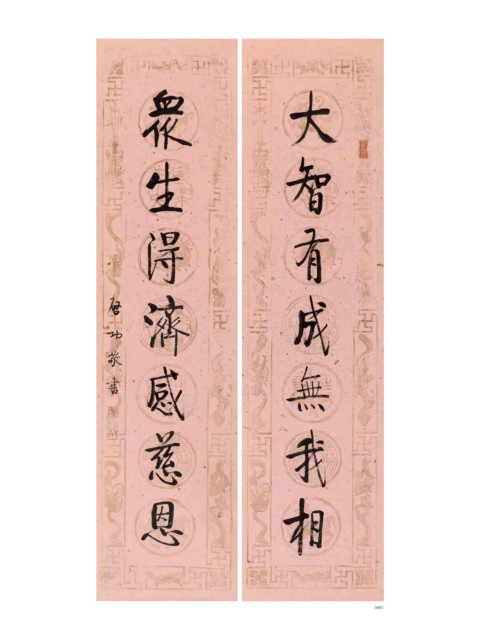 大智有成無我相
眾生得濟感慈恩
啓功敬書